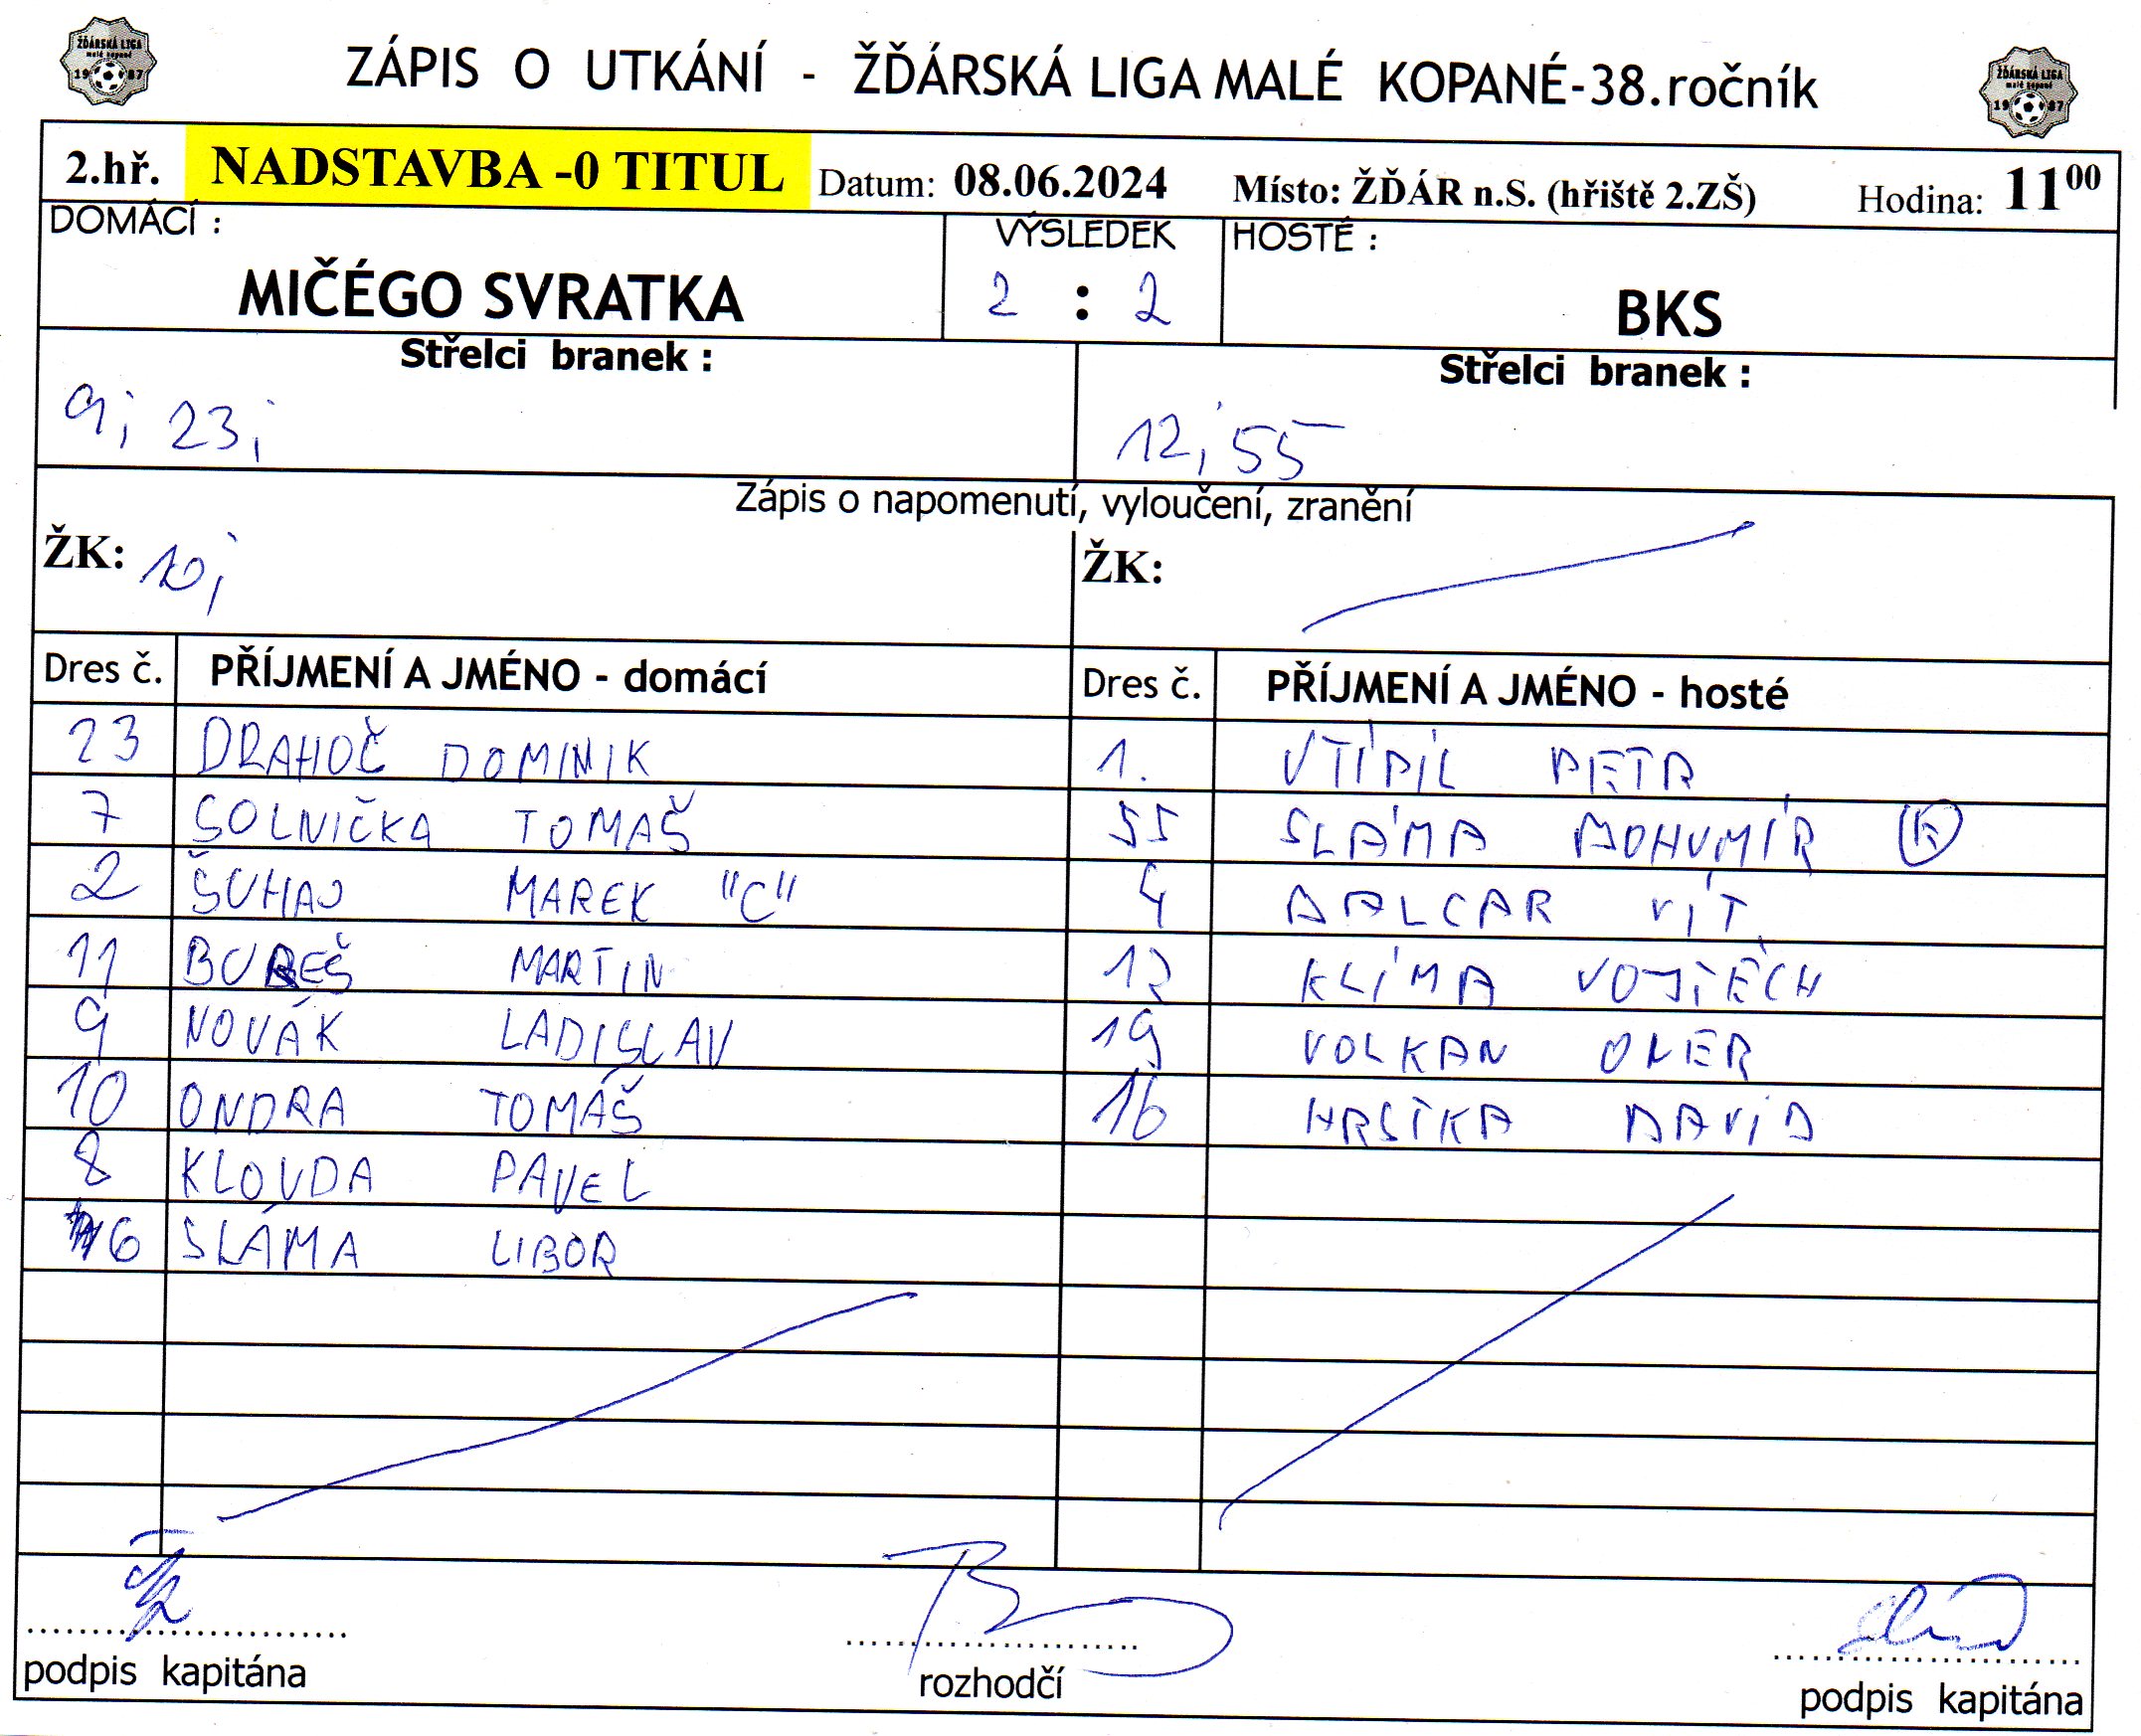 ŽĎÁRSKÁ LIGA
malé kopané
1987
ZÁPIS O UTKÁNÍ - ŽĎÁRSKÁ LIGA MALÉ KOPANÉ-38.ročník
ŽĎÁRSKÁ LIGA
malé kopané
1987
2.hř. NADSTAVBA -0 TITUL Datum: 08.06.2024 Místo: ŽĎÁR n.S. (hřiště 2.ZŠ) Hodina: 11 00
DOMÁCÍ : VÝSLEDEK HOSTÉ :
MIČÉGO SVRATKA 2 : 2 BKS
Střelci branek : Střelci branek :
9; 23; 12; 55
Zápis o napomenutí, vyloučení, zranění
ŽK: 10; ŽK:
Dres č. PŘÍJMENÍ A JMÉNO - domácí Dres č. PŘÍJMENÍ A JMÉNO - hosté
23 DRAHOČ DOMINIK 1. VTÍPIL PETR
7 SOLNIČKA TOMAŠ 55 SLÁMA BOHUMÍR K
2 ŠUHAJ MAREK "C" 4 BALCAR VÍT
11 BUREŠ MARTIN 12 KLÍMA VOJTĚCH
9 NOVÁK LADISLAV 19 VOLKAN OMER
10 ONDRA TOMÁŠ 16 HRSTKA DAVID
8 KLOVDA PAVEL
6 SLÁMA LIBOR
podpis kapitána rozhodčí podpis kapitána